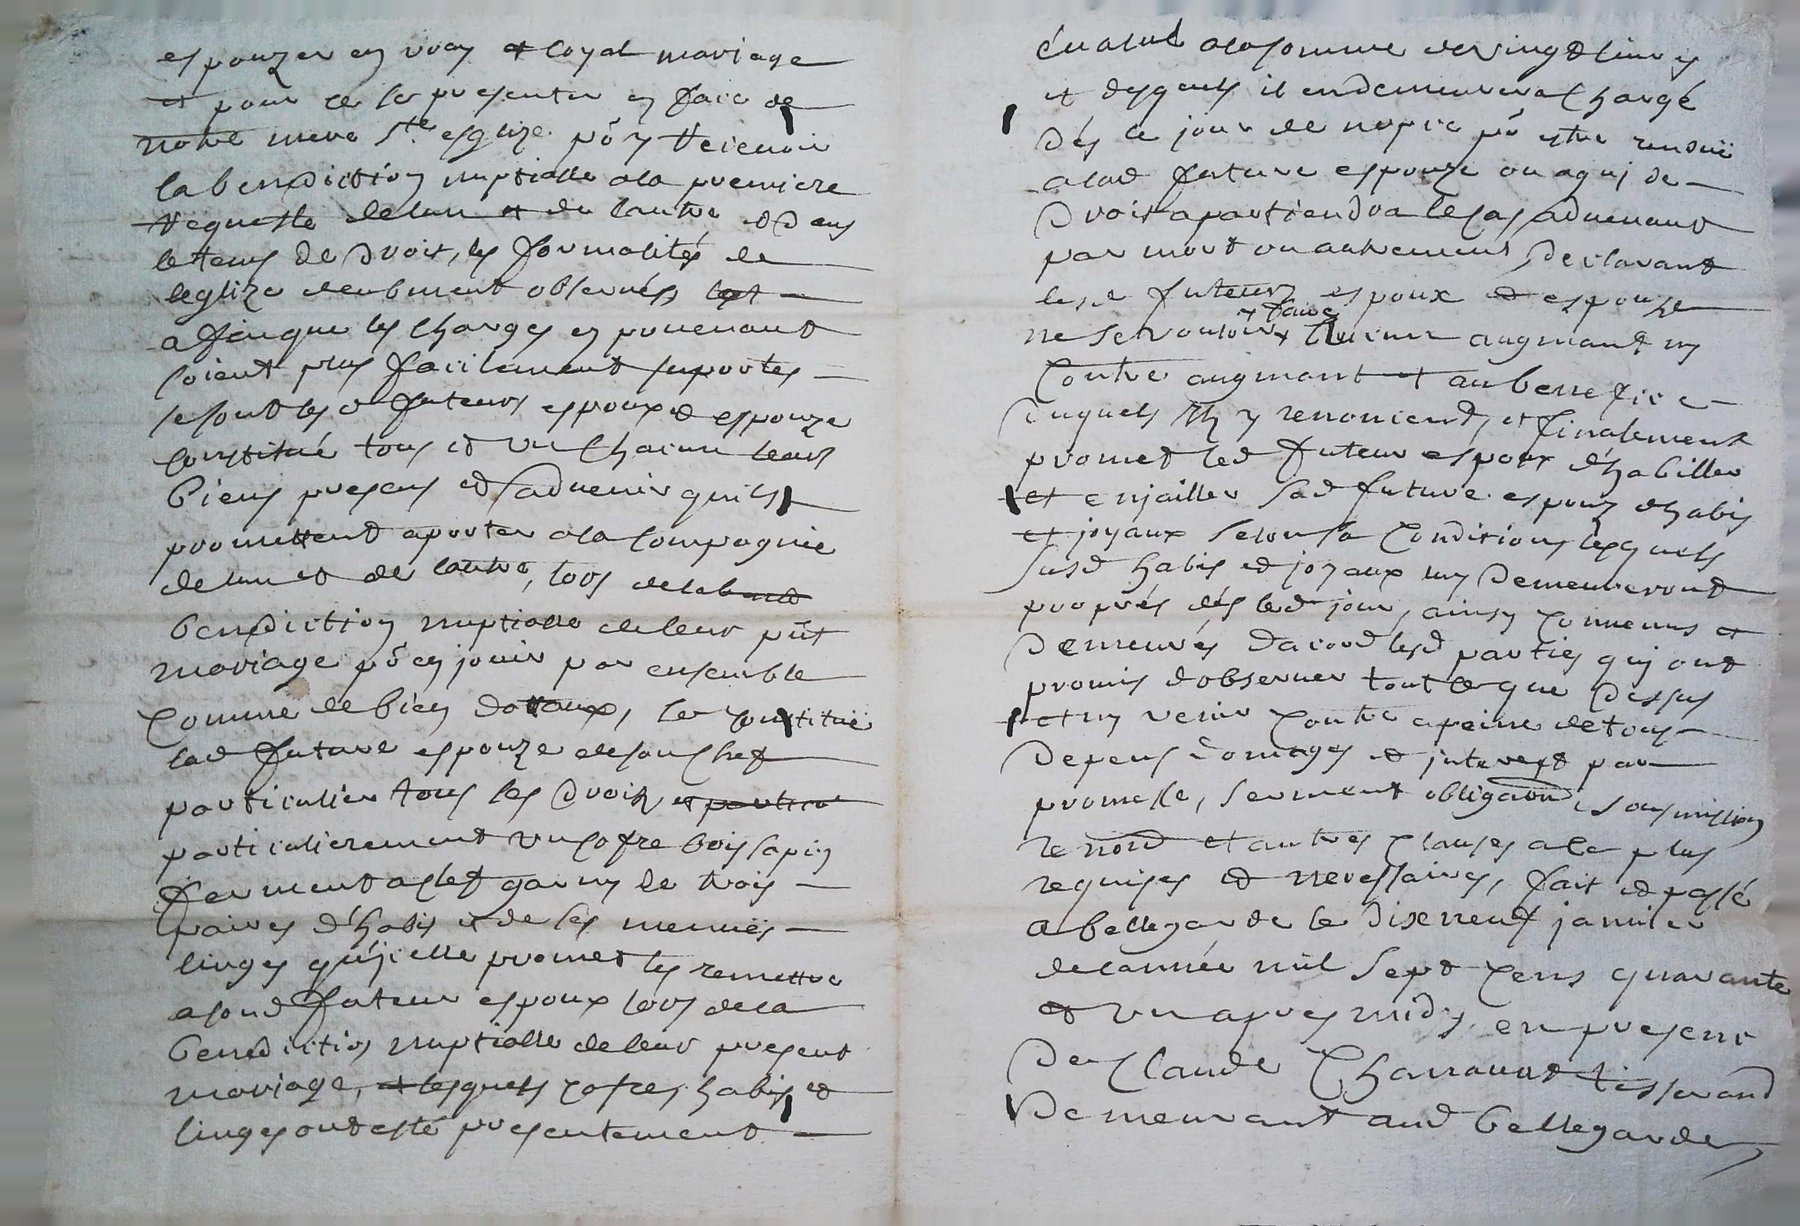 espouzer en vray et loyal mariage
et pour ce se presenter en face de
notre mere Ste esglize pō y recevoir
la benediction nuptialle a la premiere
requeste de lun et de lautre et dans
le tems de droit, les formalités de
leglize deubment observées
afin que les charges en provenant
soient plus facilement suportes
se sont lesd futeurs espoux et espouze
constitué tous et un chacun leurs
biens presens et advenir quils
promettent aporter a la compagnie
de lun et de lautre, lors de la
benediction nuptialle de leur pñt
mariage pō en jouir par ensemble
comme de bien dottaux, se constitue
lad future espouze de son chef
particulier tous ses droits et particu
particulierement un cofre bois sapin
fermant a clef garny de trois
paires d'habis et de ses menües
linges qu'jcelle promet les remettre
a sond futeur espoux lors de la
benediction nuptialle de leur present
mariage, et lesquels cofre, habis et
linges ont esté presentement
évalué a la somme de vingt livres
et desquels il en demeurera chargé
dés le jour de nopce pō estre rendüe
a lad future espouze ou a qui de
droit apartiendra le cas advenant
par mort ou autrement, declarant
lesd futeurs espoux et espouze
ne se vouloir faire aucun augmant ny
contre augmant et au benefice
duquels ils y renoncient, et finalement
promet led futeur espoux d'habiller
et enjailler sad future espouze d'habis
et joyaux selon sa condition lesquels
susd habis et joyaux luy demeureront
proprés dés led jour, ainsy convenus et
demeurés dacord lesd parties qui ont
promis dobserver tout ce que dessus
et ny venir contre a peine de tous
depens domages et interest par
promesse, serment obligaōn, soumission
renonō et autres clauses a ce plus
requises et necessaires, fait et passé
a bellegarde le dixneuf janvier
de lannée mil sept cens quarante
et un apres midy, en presence
de Claude Charraud tissurand
demeurant aud bellegarde,